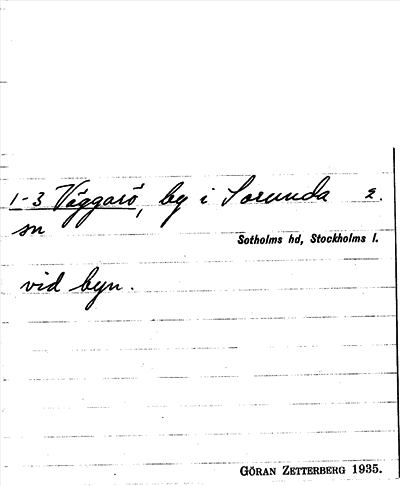 1-3 Väggarö, by i Sorunda 2.
sn
Sotholms hd, Stockholms l.
vid byn.
GÖRAN ZETTERBERG 1935.